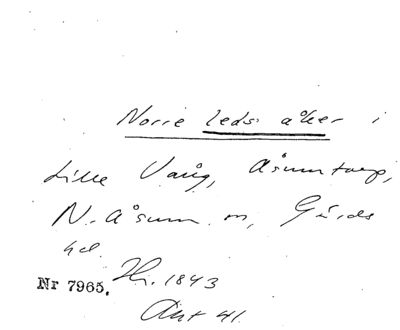 Norre leds åker i
Lille Vång, Åsumtorp,
N. Åsum sn, Gärds
hd.
Nr 7965. Hr. 1843
Akt 41.